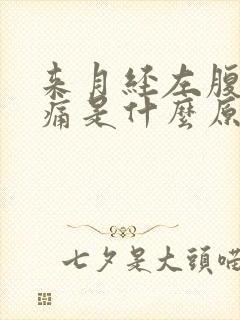 来月经左腹
痛是什麼原
七夕是大頭喏